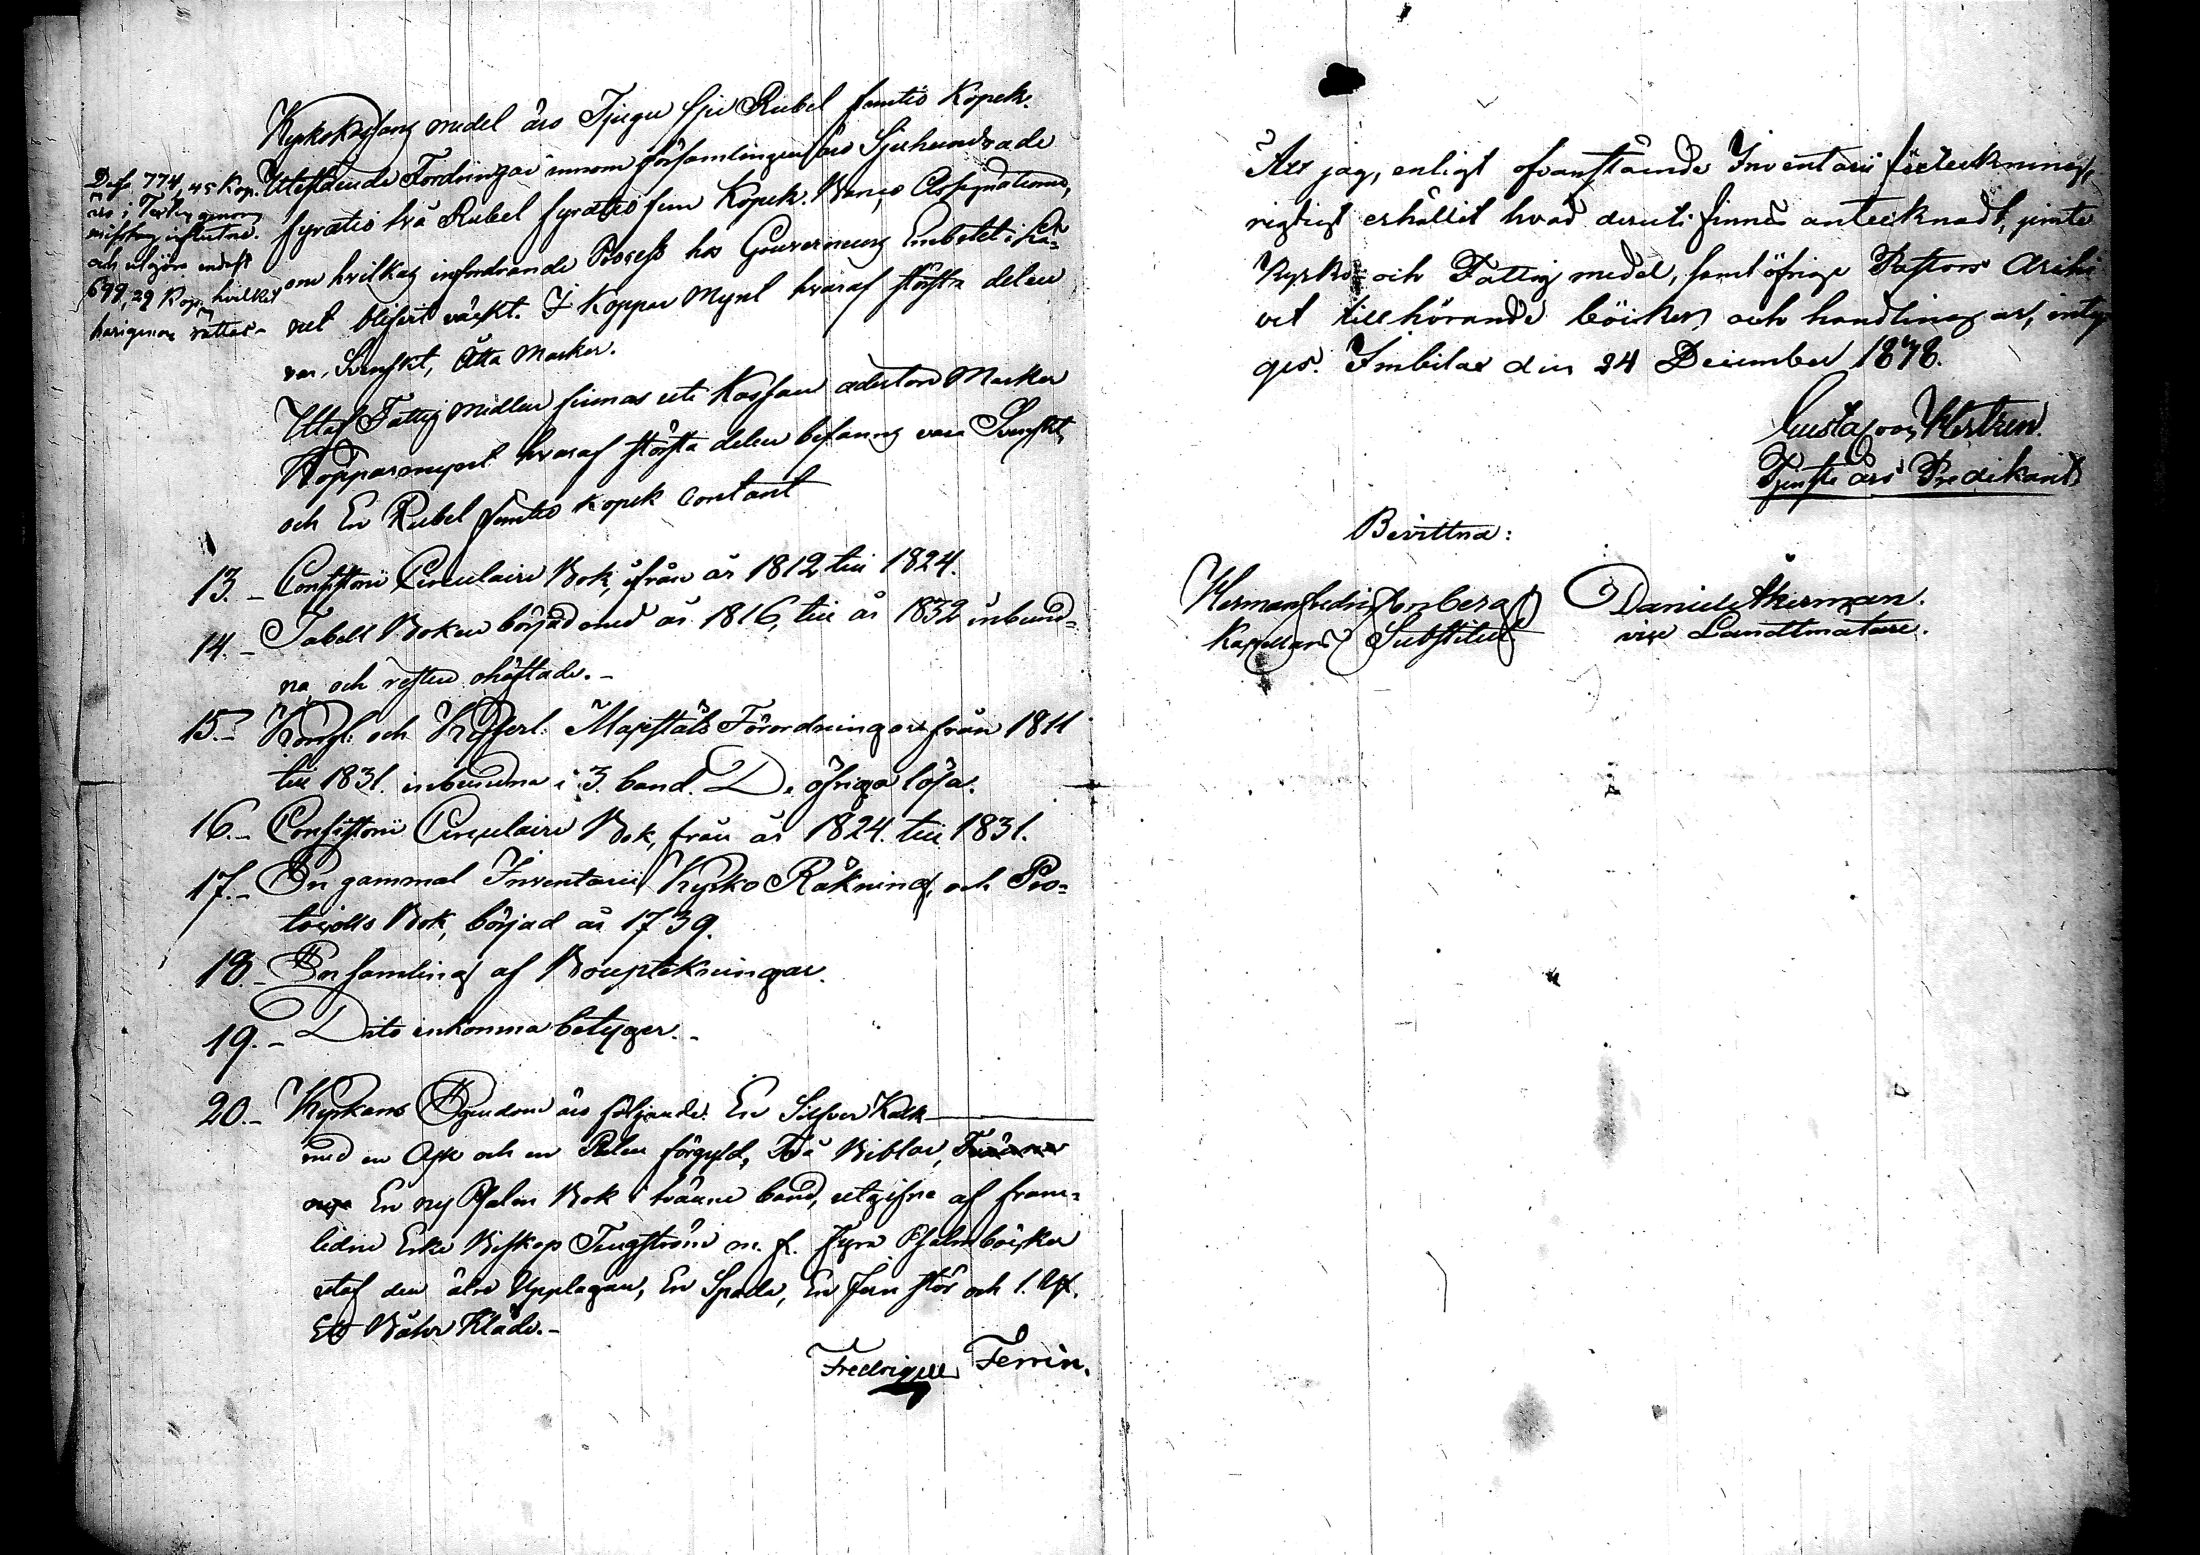 Kyrkokassans medel äro Tjugu sju Rubel femtio Kopek.
Utestående Fordringar innom församlingen äro Sjuhundrade
fyratio två Rubel fyratio fem Kopek. Banco Assignationer,
om hvilkas infordrande Process hos Guverneurs Embetet i hä-
net blifvit väckt. I Koppar Mynt hvaraf största delen
var Svenskt, Åtta Marker.
Dessa 774, 45 Kop.
äro i Texten genom
misstag influtne
och utgöra endast
699, 29 Kop. hvilket
härigenom rättas
Utaf Fattig Medlen finnas uti Kassan aderton Marker
Kopparmynt hvaraf största delen befanns vara Svenskt,
och En Rubel femtio Kopek Contant
13. - Consistorii Circulaire Bok, ifrån år 1812 till 1824.
14. - Tabell Boken börjad med år 1816, till år 1832 inbund-
na och resten ohäftade. -
15. - Kongl: och Kejserl: Majestäts Förordningar från 1811
till 1831. inbundna i 3. band. De öfriga lösa.
16. - Consistorii Circulaire Bok, från år 1824. till 1831.
17. - En gammal Inventarii Kyrko Räkning, och Pro-
tocolls Bok, börjad år 1739.
18. - En samling af Bouptekningar.
19. - Dito inkomna betyger. -
20. - Kyrkans Egendom äro följande: En Silfver Kalk
med en Ask och en Paten förgyld, Två Biblar, Tvänne
nya En ny Psalm Bok i tvänne band, utgifne af fram-
lidne Erke Biskop Tengström m. fl. fyra Psalmböcker
utaf den äldre Upplagan, En Spada, En Jern stör och 1. Yx.
Ett Bår Kläde. -
Fredrique Ferrin.
Att jag, enligt ofvanstående Inventarii förteckning,
rigtigt erhållit hvad deruti finnes antecknadt, jemte
Kyrko- och Fattig medel, samt öfrige Pastors Archi
vet tillhörande böcker och handlingar, inty
gas. Imbilax den 24 December 1878.
Gustaf
Tjenste års Predikant
Bevittna:
Herman
Kapellans Substitut
Daniel Åkerman.
vice Landtmätare.